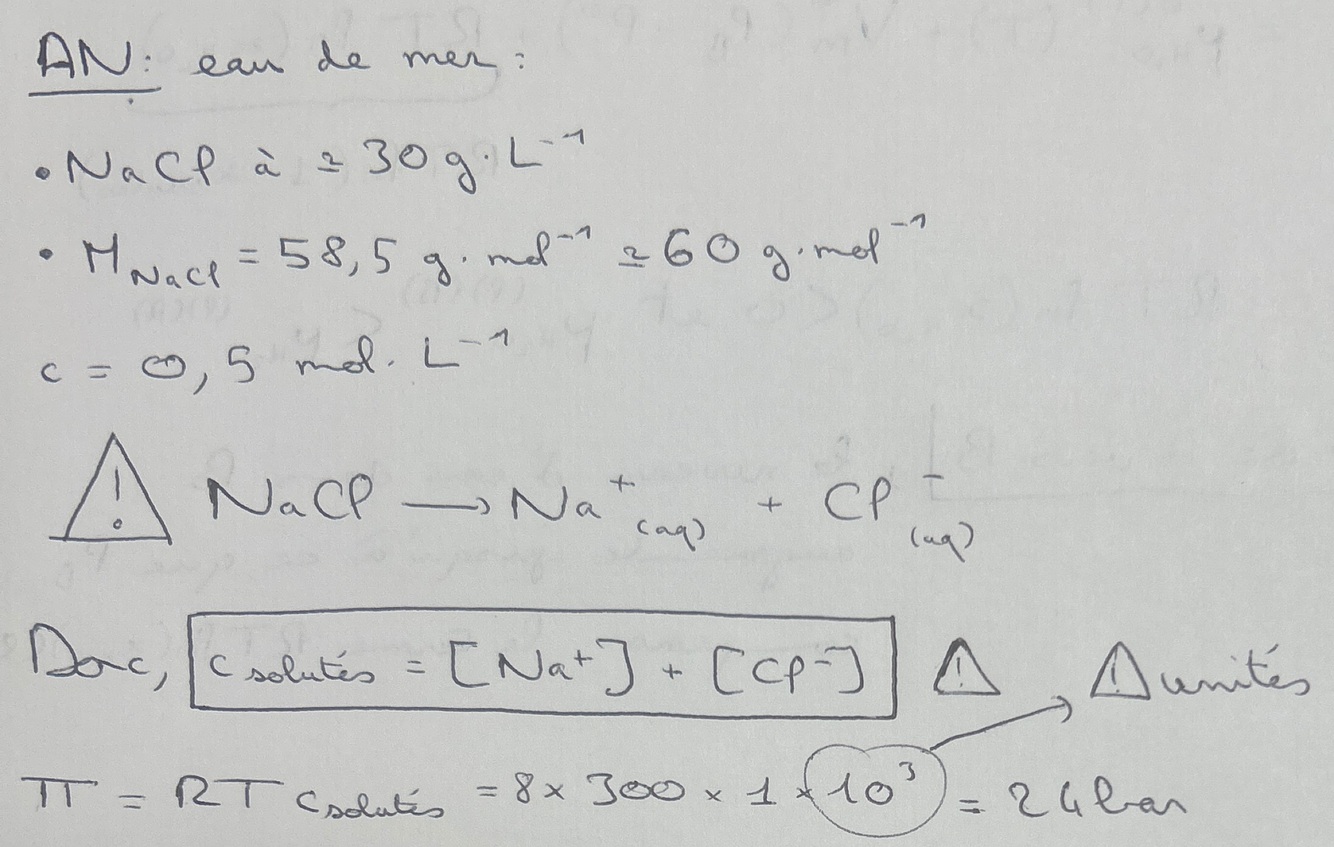 AN: eau de mer :
• NaCl à ≃ 30 g. L⁻¹
• M NaCl = 58,5 g. mol⁻¹ ≃ 60 g. mol⁻¹
c = 0,5 mol. L⁻¹
⚠ NaCl → Na⁺(aq) + Cl⁻(aq)
Donc, c solutés = [Na⁺] + [Cl⁻] ⚠ ⚠ unités
Π = RT c solutés = 8 × 300 × 1 × 10³ = 24 bar